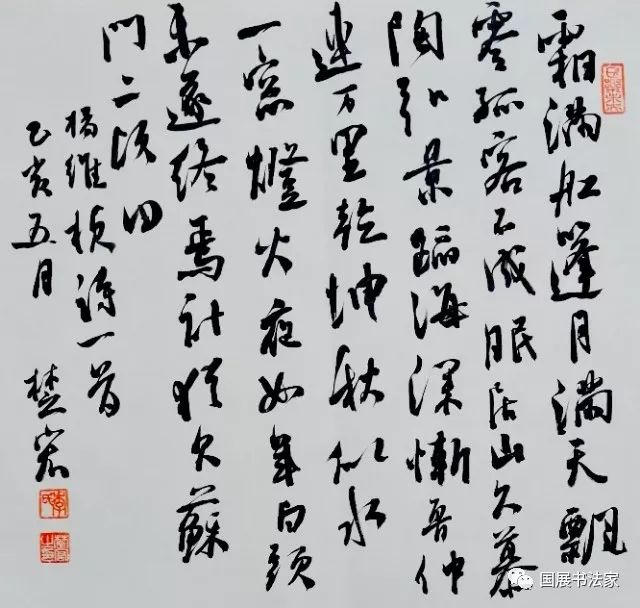 霜满舡篷月满天飘
零孤客不成眠居山久慕
陶弘景蹈海深惭鲁仲
连万里乾坤秋似水
一窓燈火夜如年白頭
未遂终焉计犹欠蘇
门二顷田
杨维桢诗一首
己亥五月 楚
国展书法家